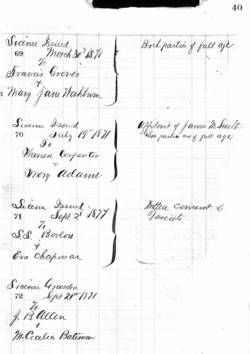 40
License Issued
69 March 30th 1871
To
Francis Graves
&
Mary Jane Washburn
Both parties of full age
License Issued
70 July 19th 1871
To
Warren Carpenter
Mary Adams
Affidavit of James M.
parties are of full age
License Issued
71 Sept 2d 1877
To
S.S. Barlow
&
Eva Chapman
Written consent of
Parents
License Granted
72 Sept 21st 1871
To
J. B. Allen
&
McCealia Bateman